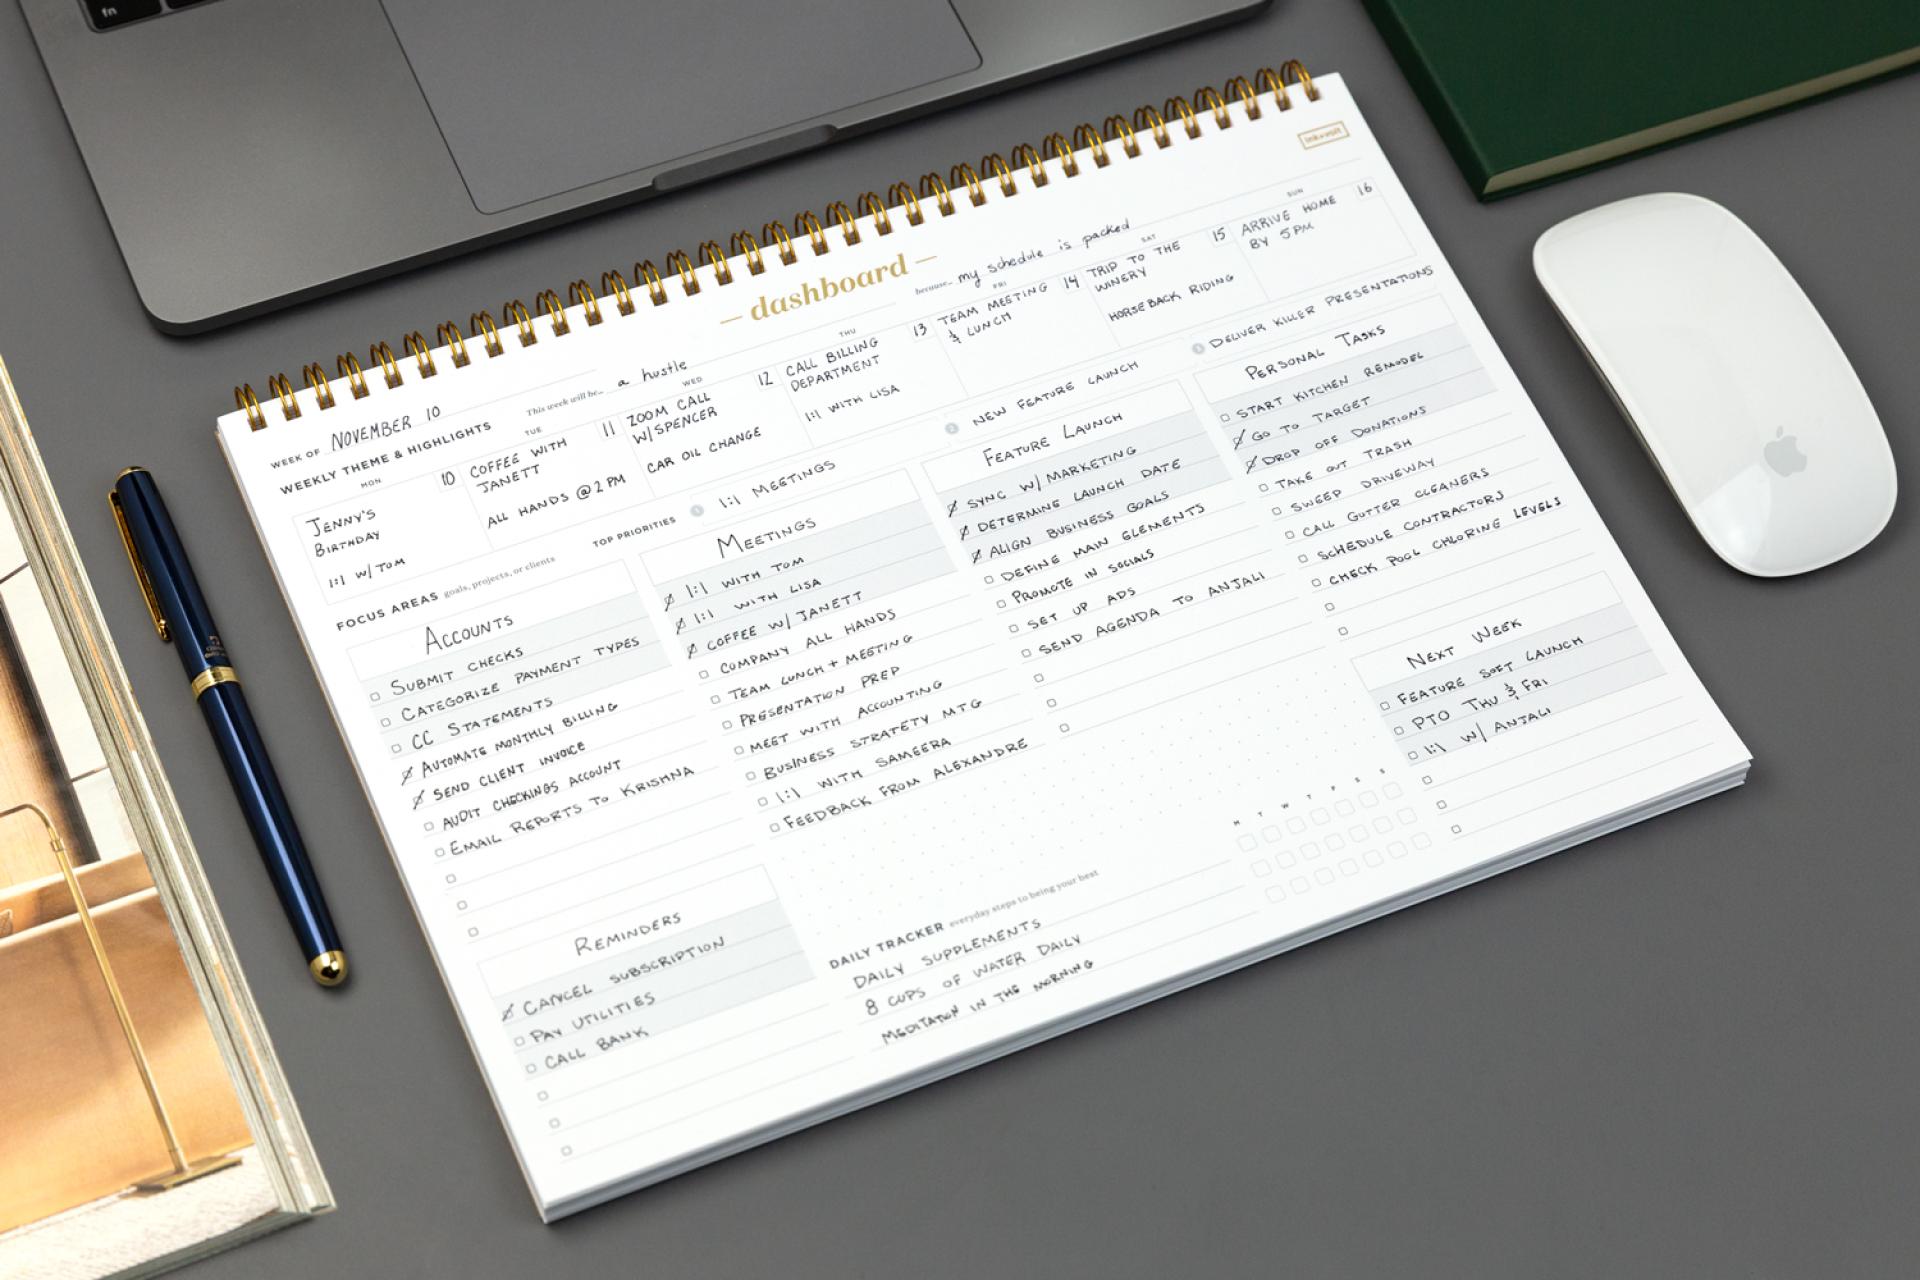 fn
ink+volt
dashboard
WEEK OF NOVEMBER 10
This week will be... a hustle
because... my schedule is packed
WEEKLY THEME & HIGHLIGHTS
MON
10
JENNY'S
BIRTHDAY
1:1 W/ TOM
TUE
11
COFFEE WITH
JANETT
ALL HANDS @ 2 PM
WED
12
ZOOM CALL
W/ SPENCER
CAR OIL CHANGE
THU
13
CALL BILLING
DEPARTMENT
1:1 WITH LISA
FRI
14
TEAM MEETING
& LUNCH
SAT
15
TRIP TO THE
WINERY
HORSEBACK RIDING
SUN
16
ARRIVE HOME
BY 5PM
TOP PRIORITIES
1 1:1 MEETINGS
2 NEW FEATURE LAUNCH
3 DELIVER KILLER PRESENTATIONS
FOCUS AREAS goals, projects, or clients
ACCOUNTS
SUBMIT CHECKS
CATEGORIZE PAYMENT TYPES
CC STATEMENTS
AUTOMATE MONTHLY BILLING
SEND CLIENT INVOICE
AUDIT CHECKINGS ACCOUNT
EMAIL REPORTS TO KRISHNA
REMINDERS
CANCEL SUBSCRIPTION
PAY UTILITIES
CALL BANK
MEETINGS
1:1 WITH TOM
1:1 WITH LISA
COFFEE W/ JANETT
COMPANY ALL HANDS
TEAM LUNCH + MEETING
PRESENTATION PREP
MEET WITH ACCOUNTING
BUSINESS STRATETY MTG
1:1 WITH SAMEERA
FEEDBACK FROM ALEXANDRE
FEATURE LAUNCH
SYNC W/ MARKETING
DETERMINE LAUNCH DATE
ALIGN BUSINESS GOALS
DEFINE MAIN ELEMENTS
PROMOTE IN SOCIALS
SET UP ADS
SEND AGENDA TO ANJALI
PERSONAL TASKS
START KITCHEN REMODEL
GO TO TARGET
DROP OFF DONATIONS
TAKE OUT TRASH
SWEEP DRIVEWAY
CALL GUTTER CLEANERS
SCHEDULE CONTRACTORS
CHECK POOL CHLORINE LEVELS
NEXT WEEK
FEATURE SOFT LAUNCH
PTO THU & FRI
1:1 W/ ANJALI
DAILY TRACKER everyday steps to being your best
M T W T F S S
DAILY SUPPLEMENTS
8 CUPS OF WATER DAILY
MEDITATION IN THE MORNING